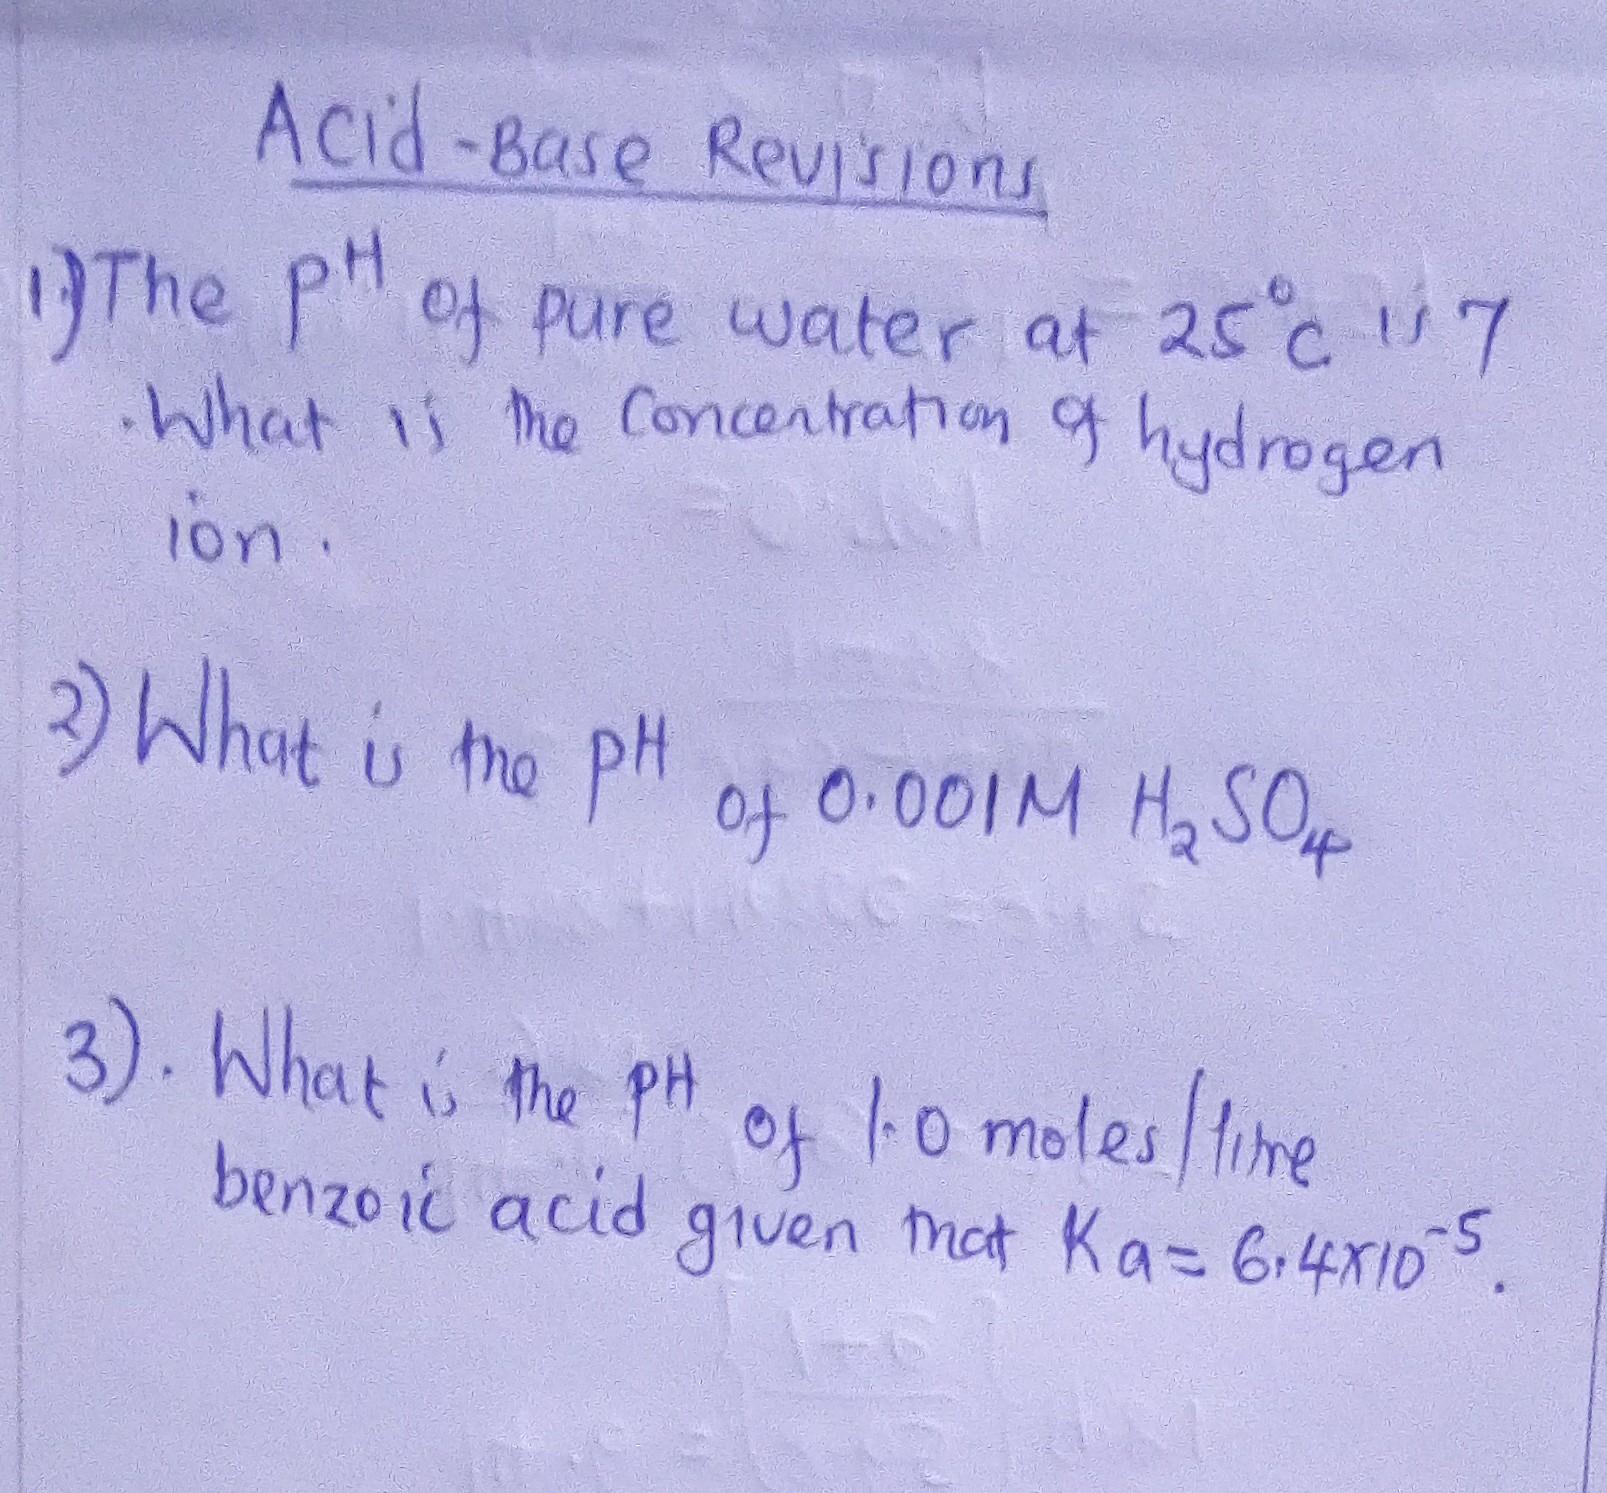 Acid-Base Revisions
1.) The pH of pure water at 25°c is 7
. What is the Concentration of hydrogen
ion.
2) What is the pH of 0.001M H₂SO₄
3). What is the pH of 1.0 moles/litre
benzoic acid given that Ka = 6.4x10⁻⁵.